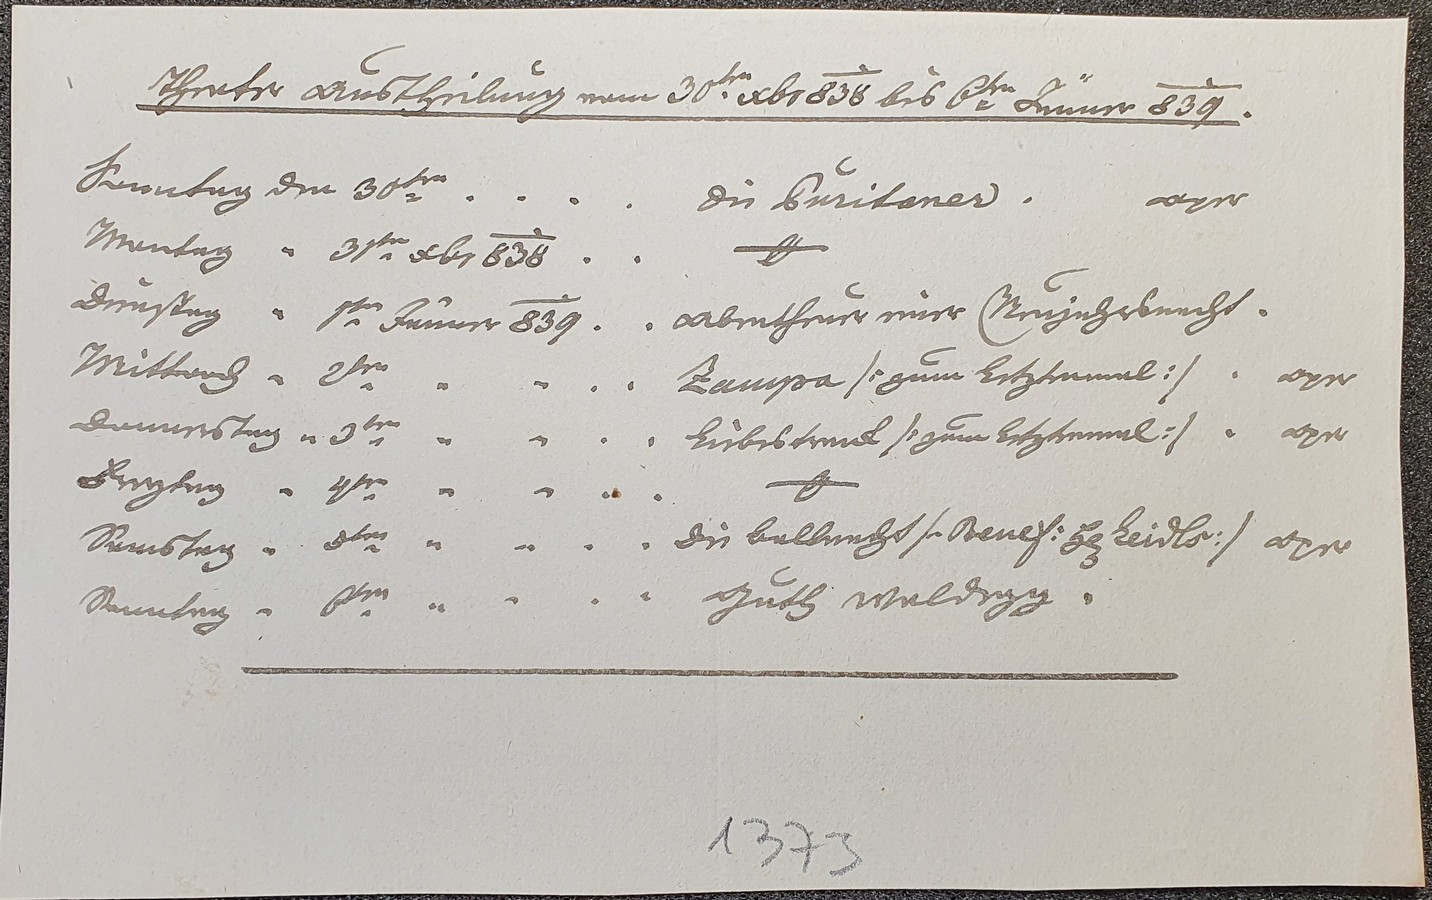 Theater Austheilung vom 30ten xbr 838 bis 6ten Jänner 839.
Sonntag den 30ten . . . . die Puritaner . oper
Montag " 31ten xbr 838 . .
Dienstag " 1ten Jänner 839 . . Abentheuer einer Neujahrsnacht .
Mittwoch " 2ten " " . . Zampa /: zum letztenmal :/ . oper
Donnerstag " 3ten " " . . Liebestrank /: zum letztenmal :/ . oper
Freytag " 4ten " " . .
Samstag " 5ten " " . . die Ballnacht /: Benef: Leidls :/ oper
Sonntag " 6ten " " . . Guth Waldegg .
1373